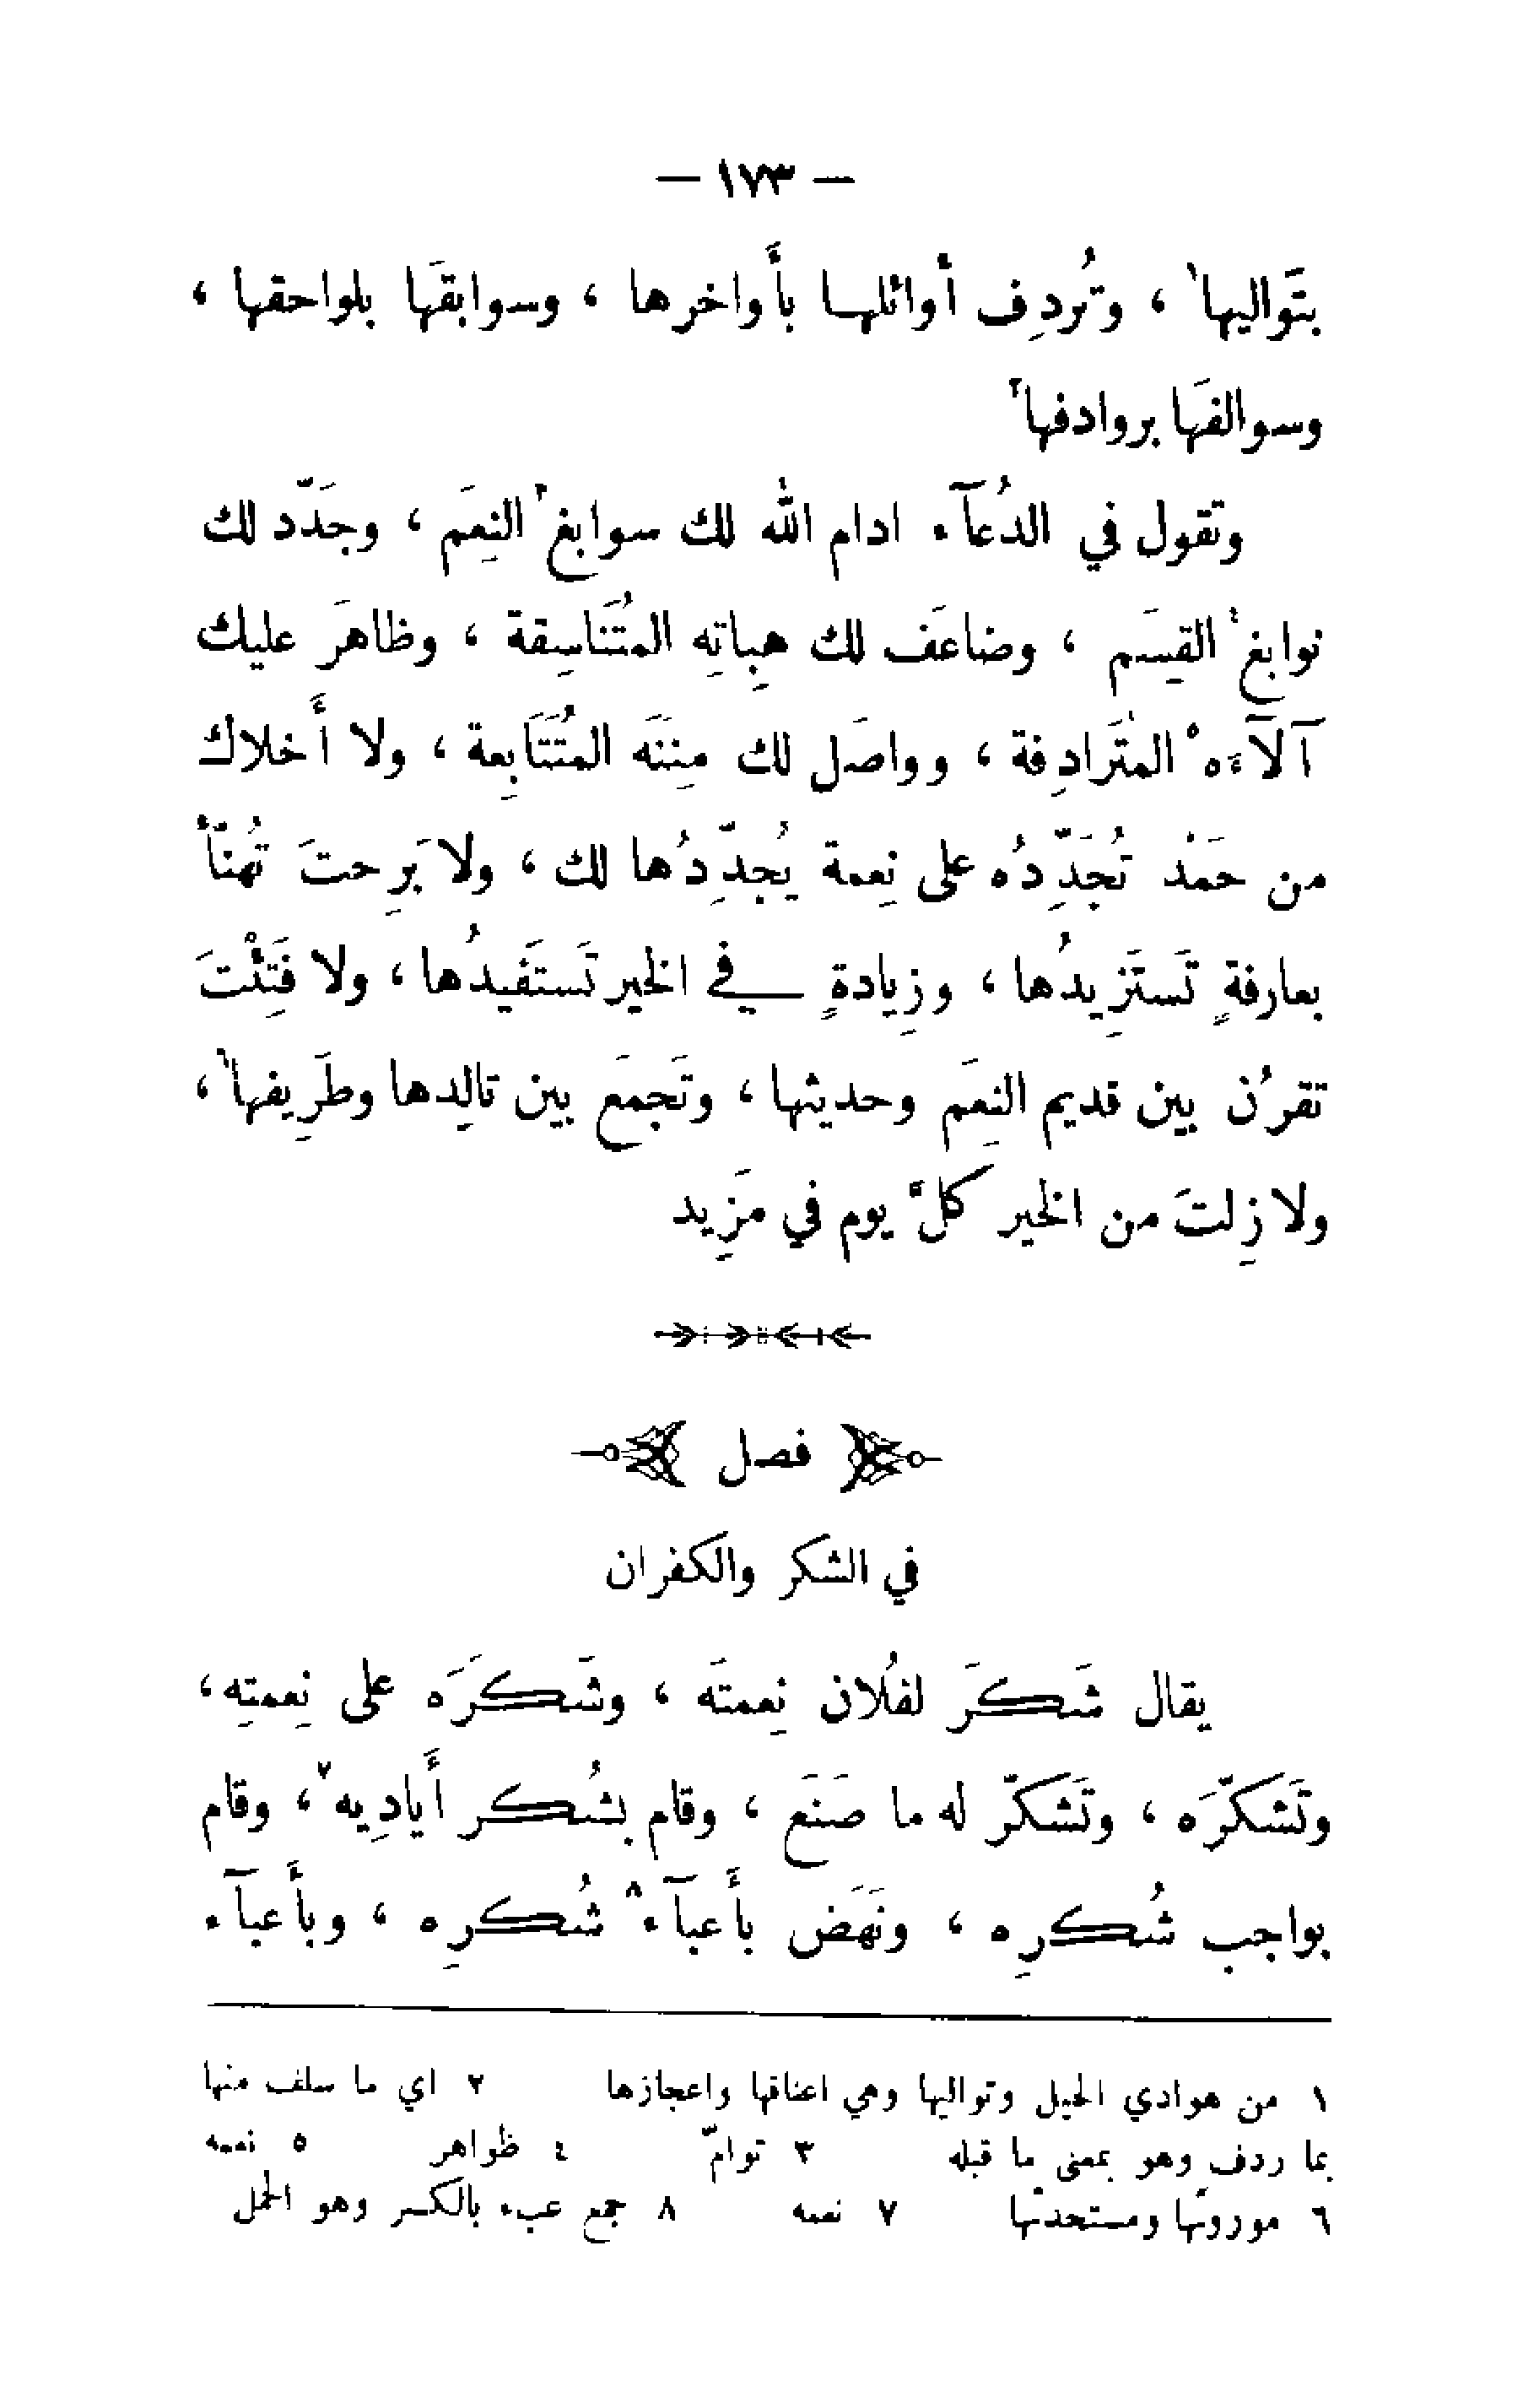 — ١٧٣ —
بتَّواليها١ ، وتُردِف أوائلها بأَواخرها ، وسوابقَها بلواحقها ،
وسوالفَها بروادفها٢
وتقول في الدُعآء ادام الله لك سوابغ٣ النِعَم ، وجَدّد لك
نوابغ٤ القِسَم ، وضاعَف لك هِباتِه المُتَناسِقة ، وظاهَر عليك
آلآءَه٥ المُتَرادِفة ، وواصَل لك مِنَنَه المُتَتَابِعة ، ولا أَخلاك
من حَمْد تُجَدِّدُه على نِعمة يُجدِّدُها لك ، ولا بَرِحتَ تُهنَّأُ
بعارفةٍ تَستَزِيدُها ، وزِيادةٍ في الخير تَستَفيدُها ، ولا فَتِئْتَ
تقرُن بين قديم النِعَم وحديثها ، وتَجمَع بين تالِدها وطَرِيفها٦ ،
ولا زِلتَ من الخير كلَّ يوم في مَزِيد
فصل
في الشكر والكفران
يقال شَكَرَ لفُلان نِعمتَه ، وشَكَرَه على نِعمتِه ،
وتَشكَّرَه ، وتَشكَّر له ما صَنَع ، وقام بشُكر أَيادِيه٧ ، وقام
بواجب شُكرِه ، ونَهَض بأَعبآء٨ شُكرِه ، وبأَعبآء
١ من هوادي الخيل وتواليها وهي اعناقها واعجازها ٢ اي ما سلف منها
بما ردف وهو بمعنى ما قبله ٣ توامّ ٤ ظواهر ٥ نعمه
٦ موروثها ومستحدثها ٧ نعمه ٨ جمع عبء بالكسر وهو الحمل